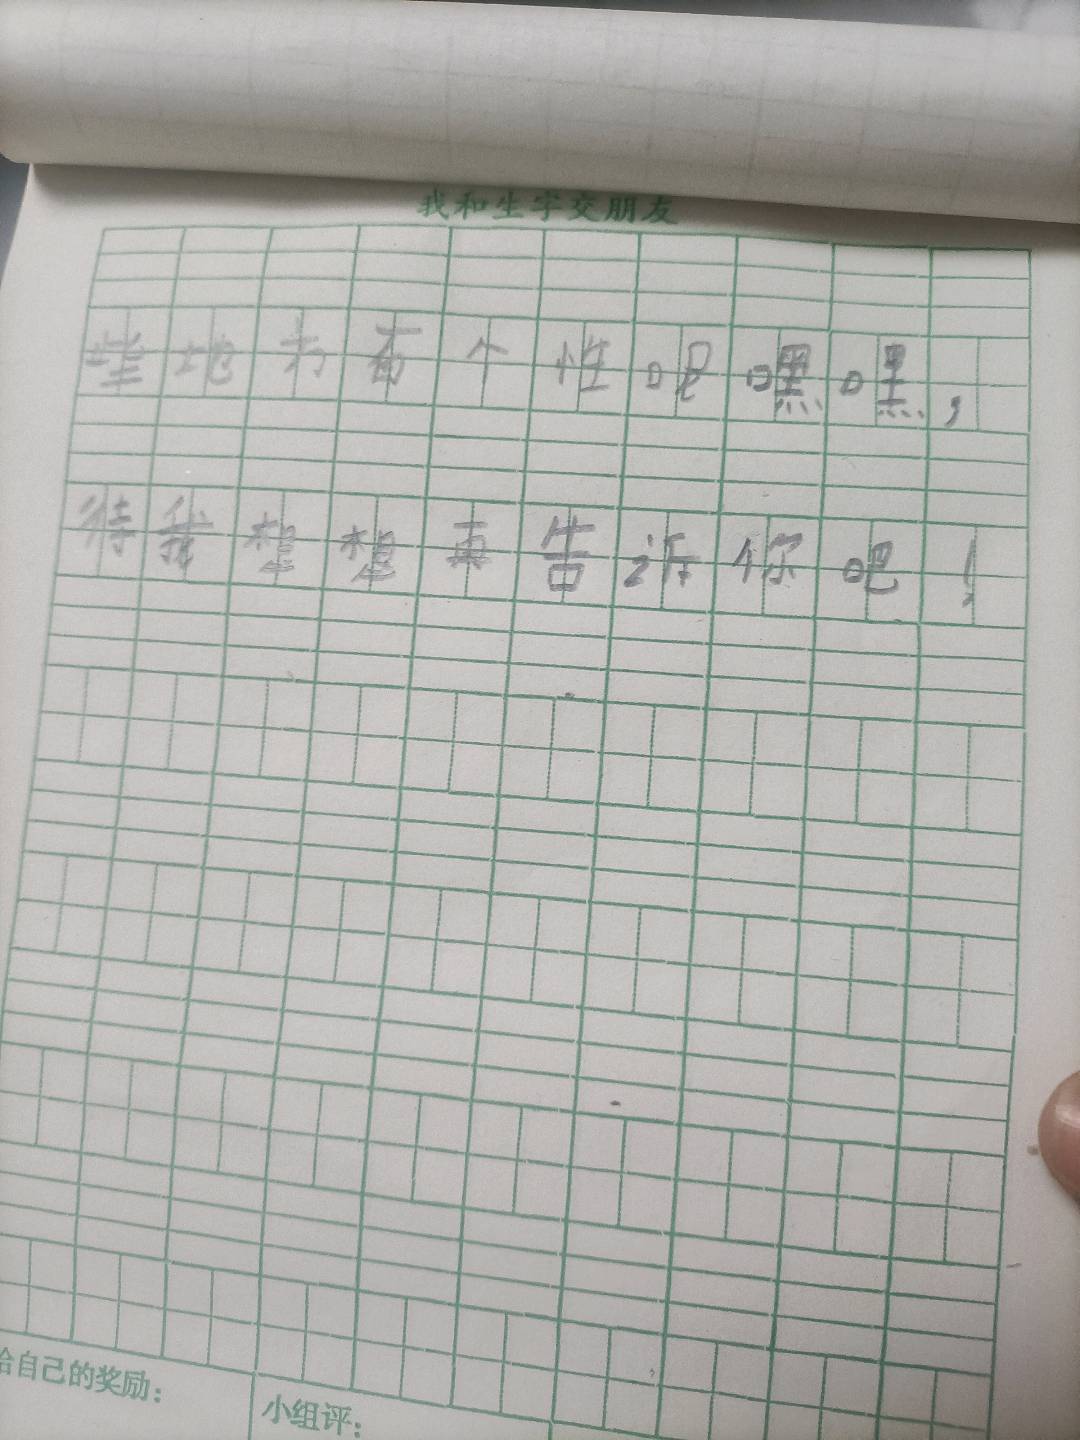 我和生字交朋友
地 个性吧嘿嘿，
待我想想再告诉你吧！
给自己的奖励：
小组评：